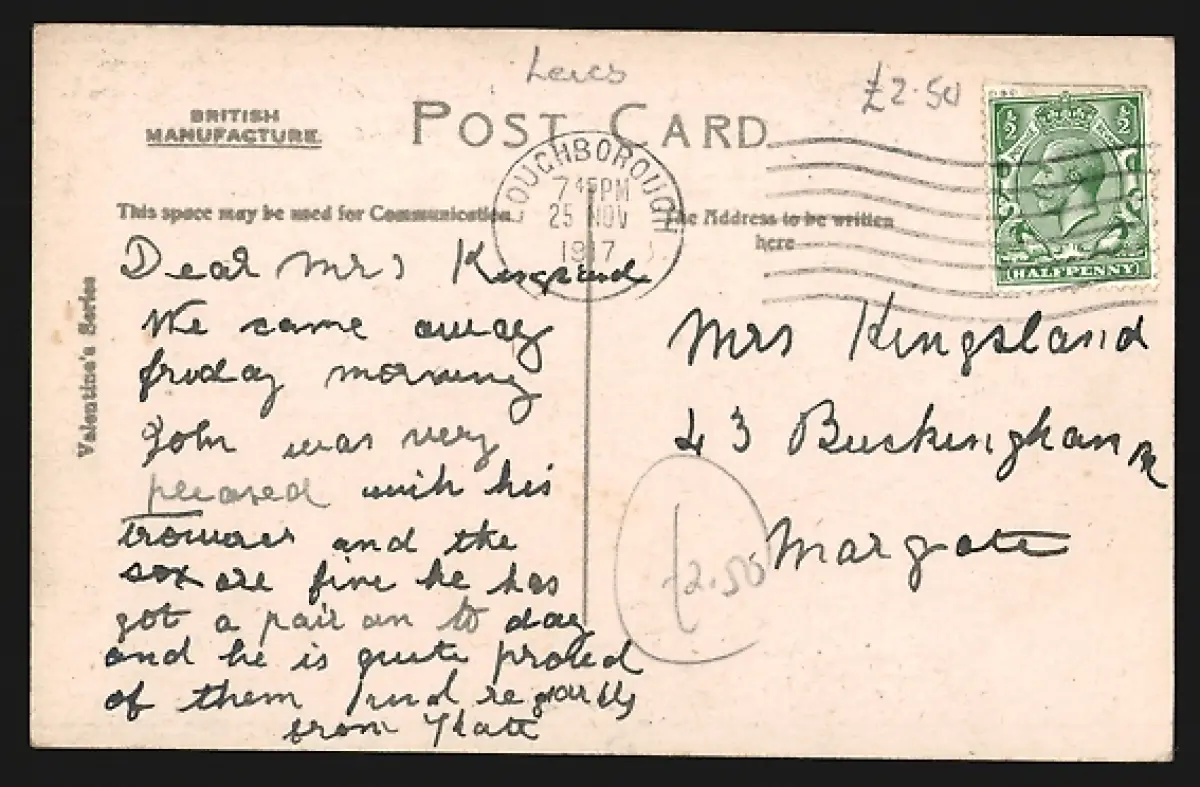 Leics
£2.50
BRITISH
MANUFACTURE.
POST CARD
LOUGHBOROUGH
7 45 PM
25 NOV
1917
½ ½
HALFPENNY
This space may be used for Communication.
The Address to be written
here
Valentine's Series
Dear Mrs Kingsland
We came away
friday morning
John was very
pleased with his
trousers and the
sox are fine he has
got a pair on to day
and he is quite proud
of them kind regards
from
Mrs Kingsland
43 Buckingham R
Margate
£2.50